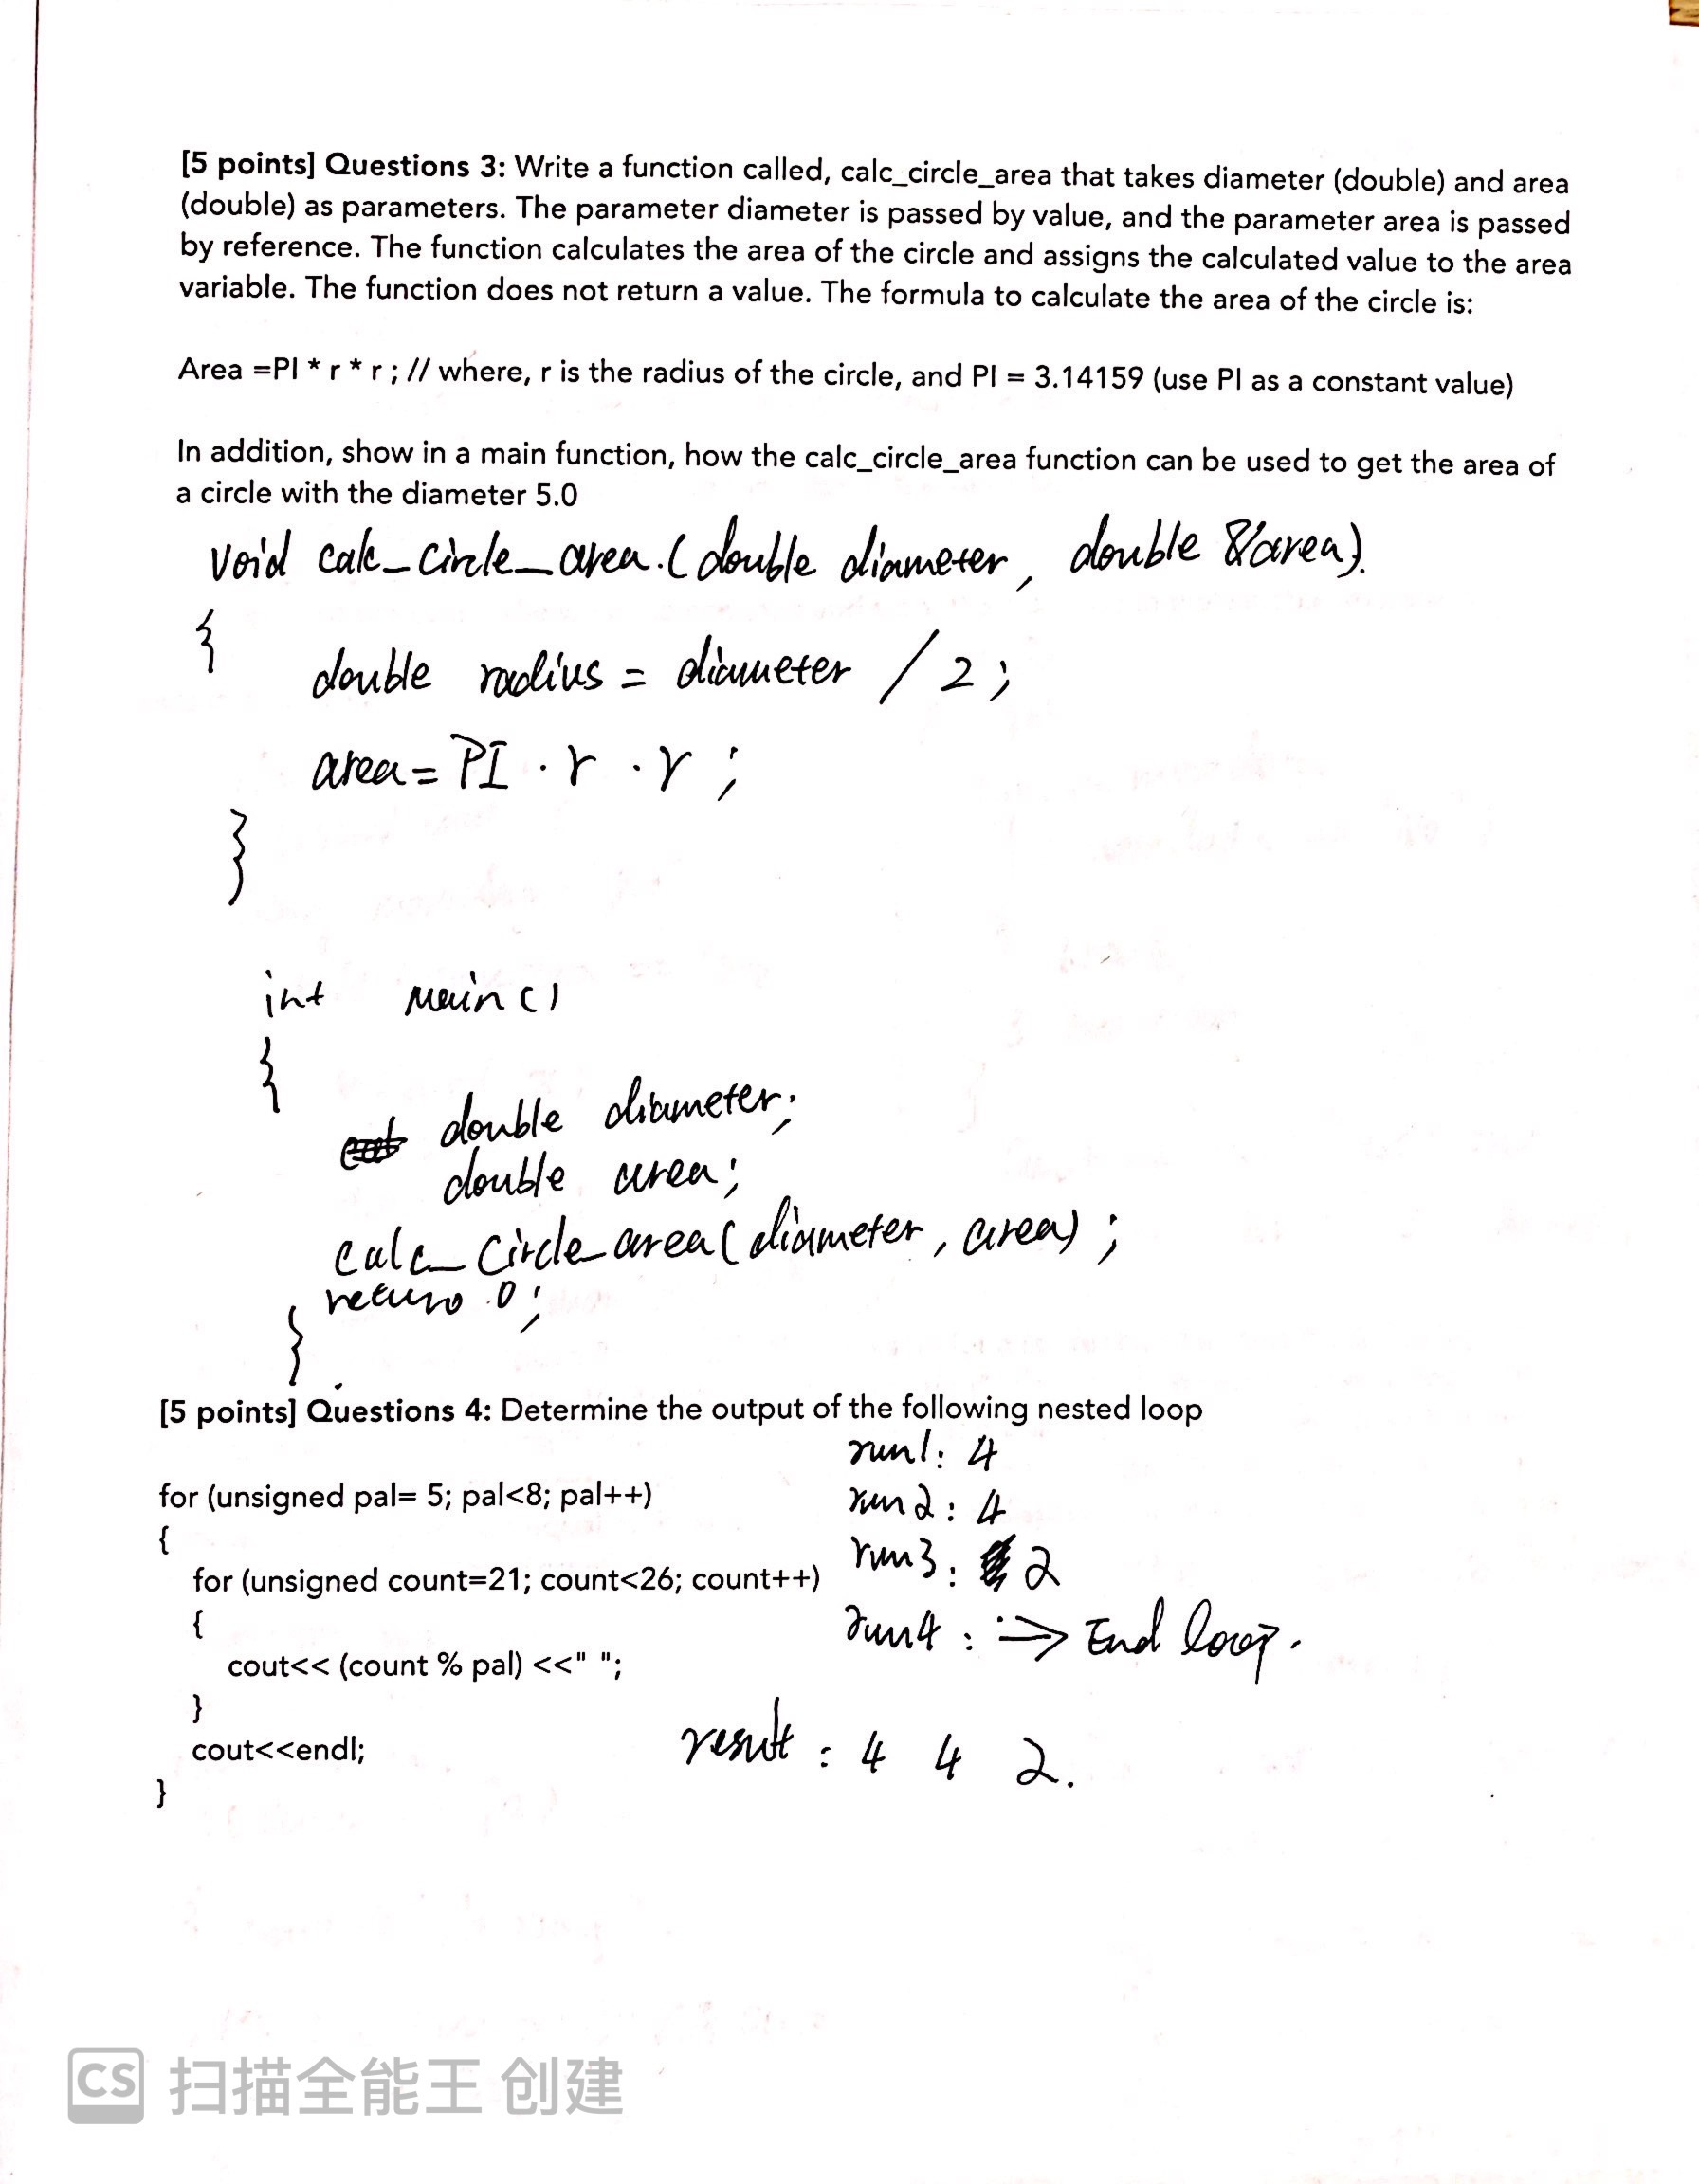 [5 points] Questions 3: Write a function called, calc_circle_area that takes diameter (double) and area
(double) as parameters. The parameter diameter is passed by value, and the parameter area is passed
by reference. The function calculates the area of the circle and assigns the calculated value to the area
variable. The function does not return a value. The formula to calculate the area of the circle is:
Area =PI * r * r ; // where, r is the radius of the circle, and PI = 3.14159 (use PI as a constant value)
In addition, show in a main function, how the calc_circle_area function can be used to get the area of
a circle with the diameter 5.0
void calc_circle_area.(double diameter, double &area).
{
double radius = diameter / 2;
area = PI · r · r ;
}
int main()
{
double diameter;
double area;
calc_circle_area(diameter, area) ;
return 0;
}
[5 points] Questions 4: Determine the output of the following nested loop
run1: 4
for (unsigned pal= 5; pal<8; pal++)
run2: 4
{
run3: 2
for (unsigned count=21; count<26; count++)
{
run4: => End loop.
cout<< (count % pal) <<" ";
}
cout<<endl;
result : 4 4 2.
}
CS 扫描全能王 创建